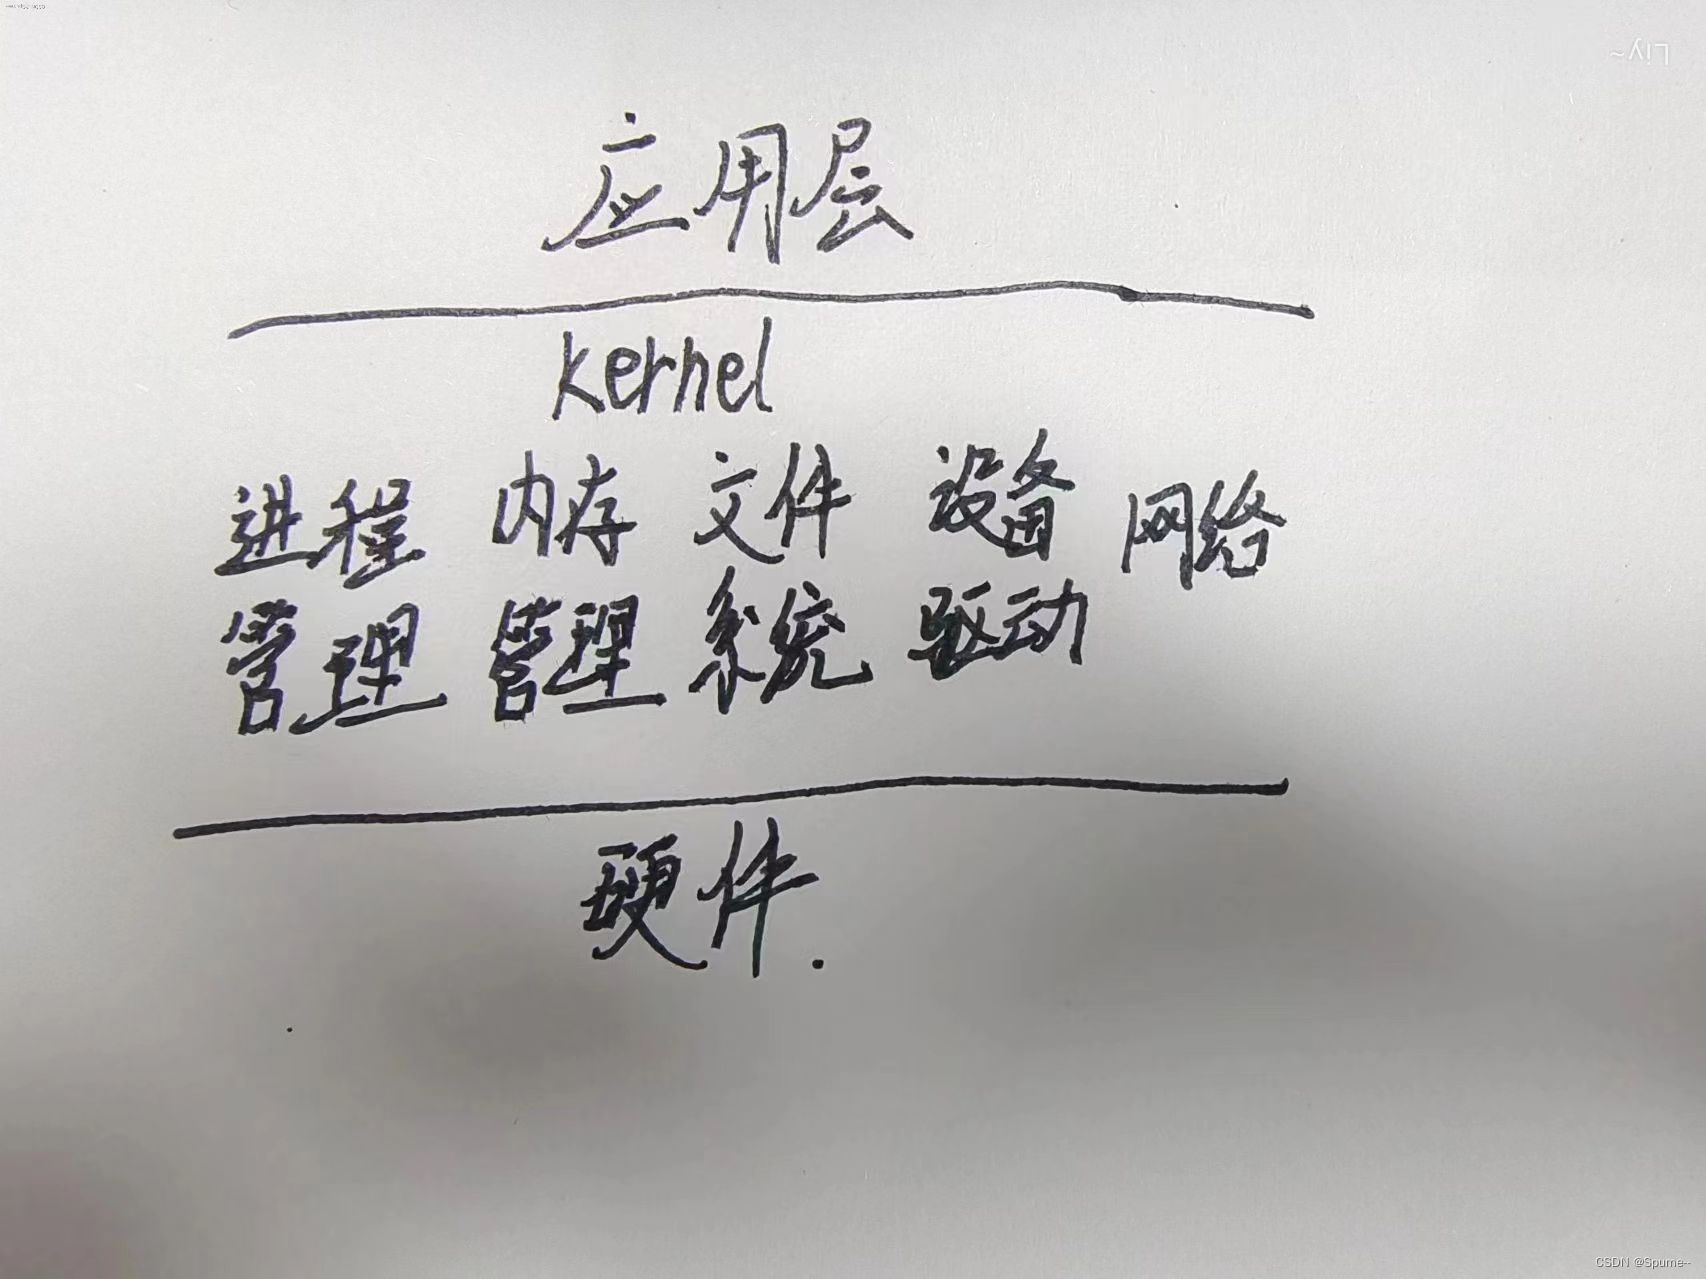 Liy~
应用层
kernel
进程 内存 文件 设备 网络
管理 管理 系统 驱动
硬件.
CSDN @Spume--